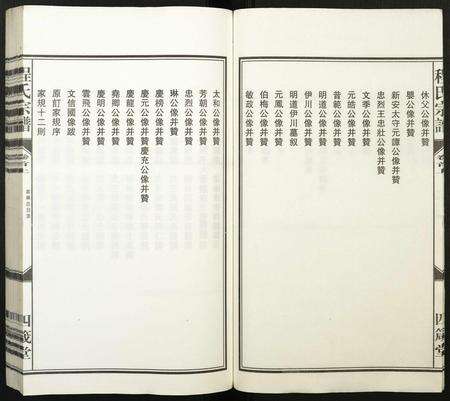 程氏宗譜
四箴堂
休父公像并贊
嬰公像并贊
新安太守元譚公像并贊
忠烈王忠壯公像并贊
文季公像并贊
元皓公像并贊
昔範公像并贊
明道伊川墓叙
伊川公像并贊
明道公像并贊
元鳳公像并贊
伯梅公像并贊
敏政公像并贊
太和公像并贊
芳朝公像并贊
忠烈公像并贊
琳公像并贊
慶榜公像并贊
慶元公像并贊慶充公像并贊
慶龍公像并贊
堯卿公像并贊
慶明公像并贊
雲飛公像并贊
文信國像跋
原訂家規序
家規十二則
程氏宗譜
四箴堂